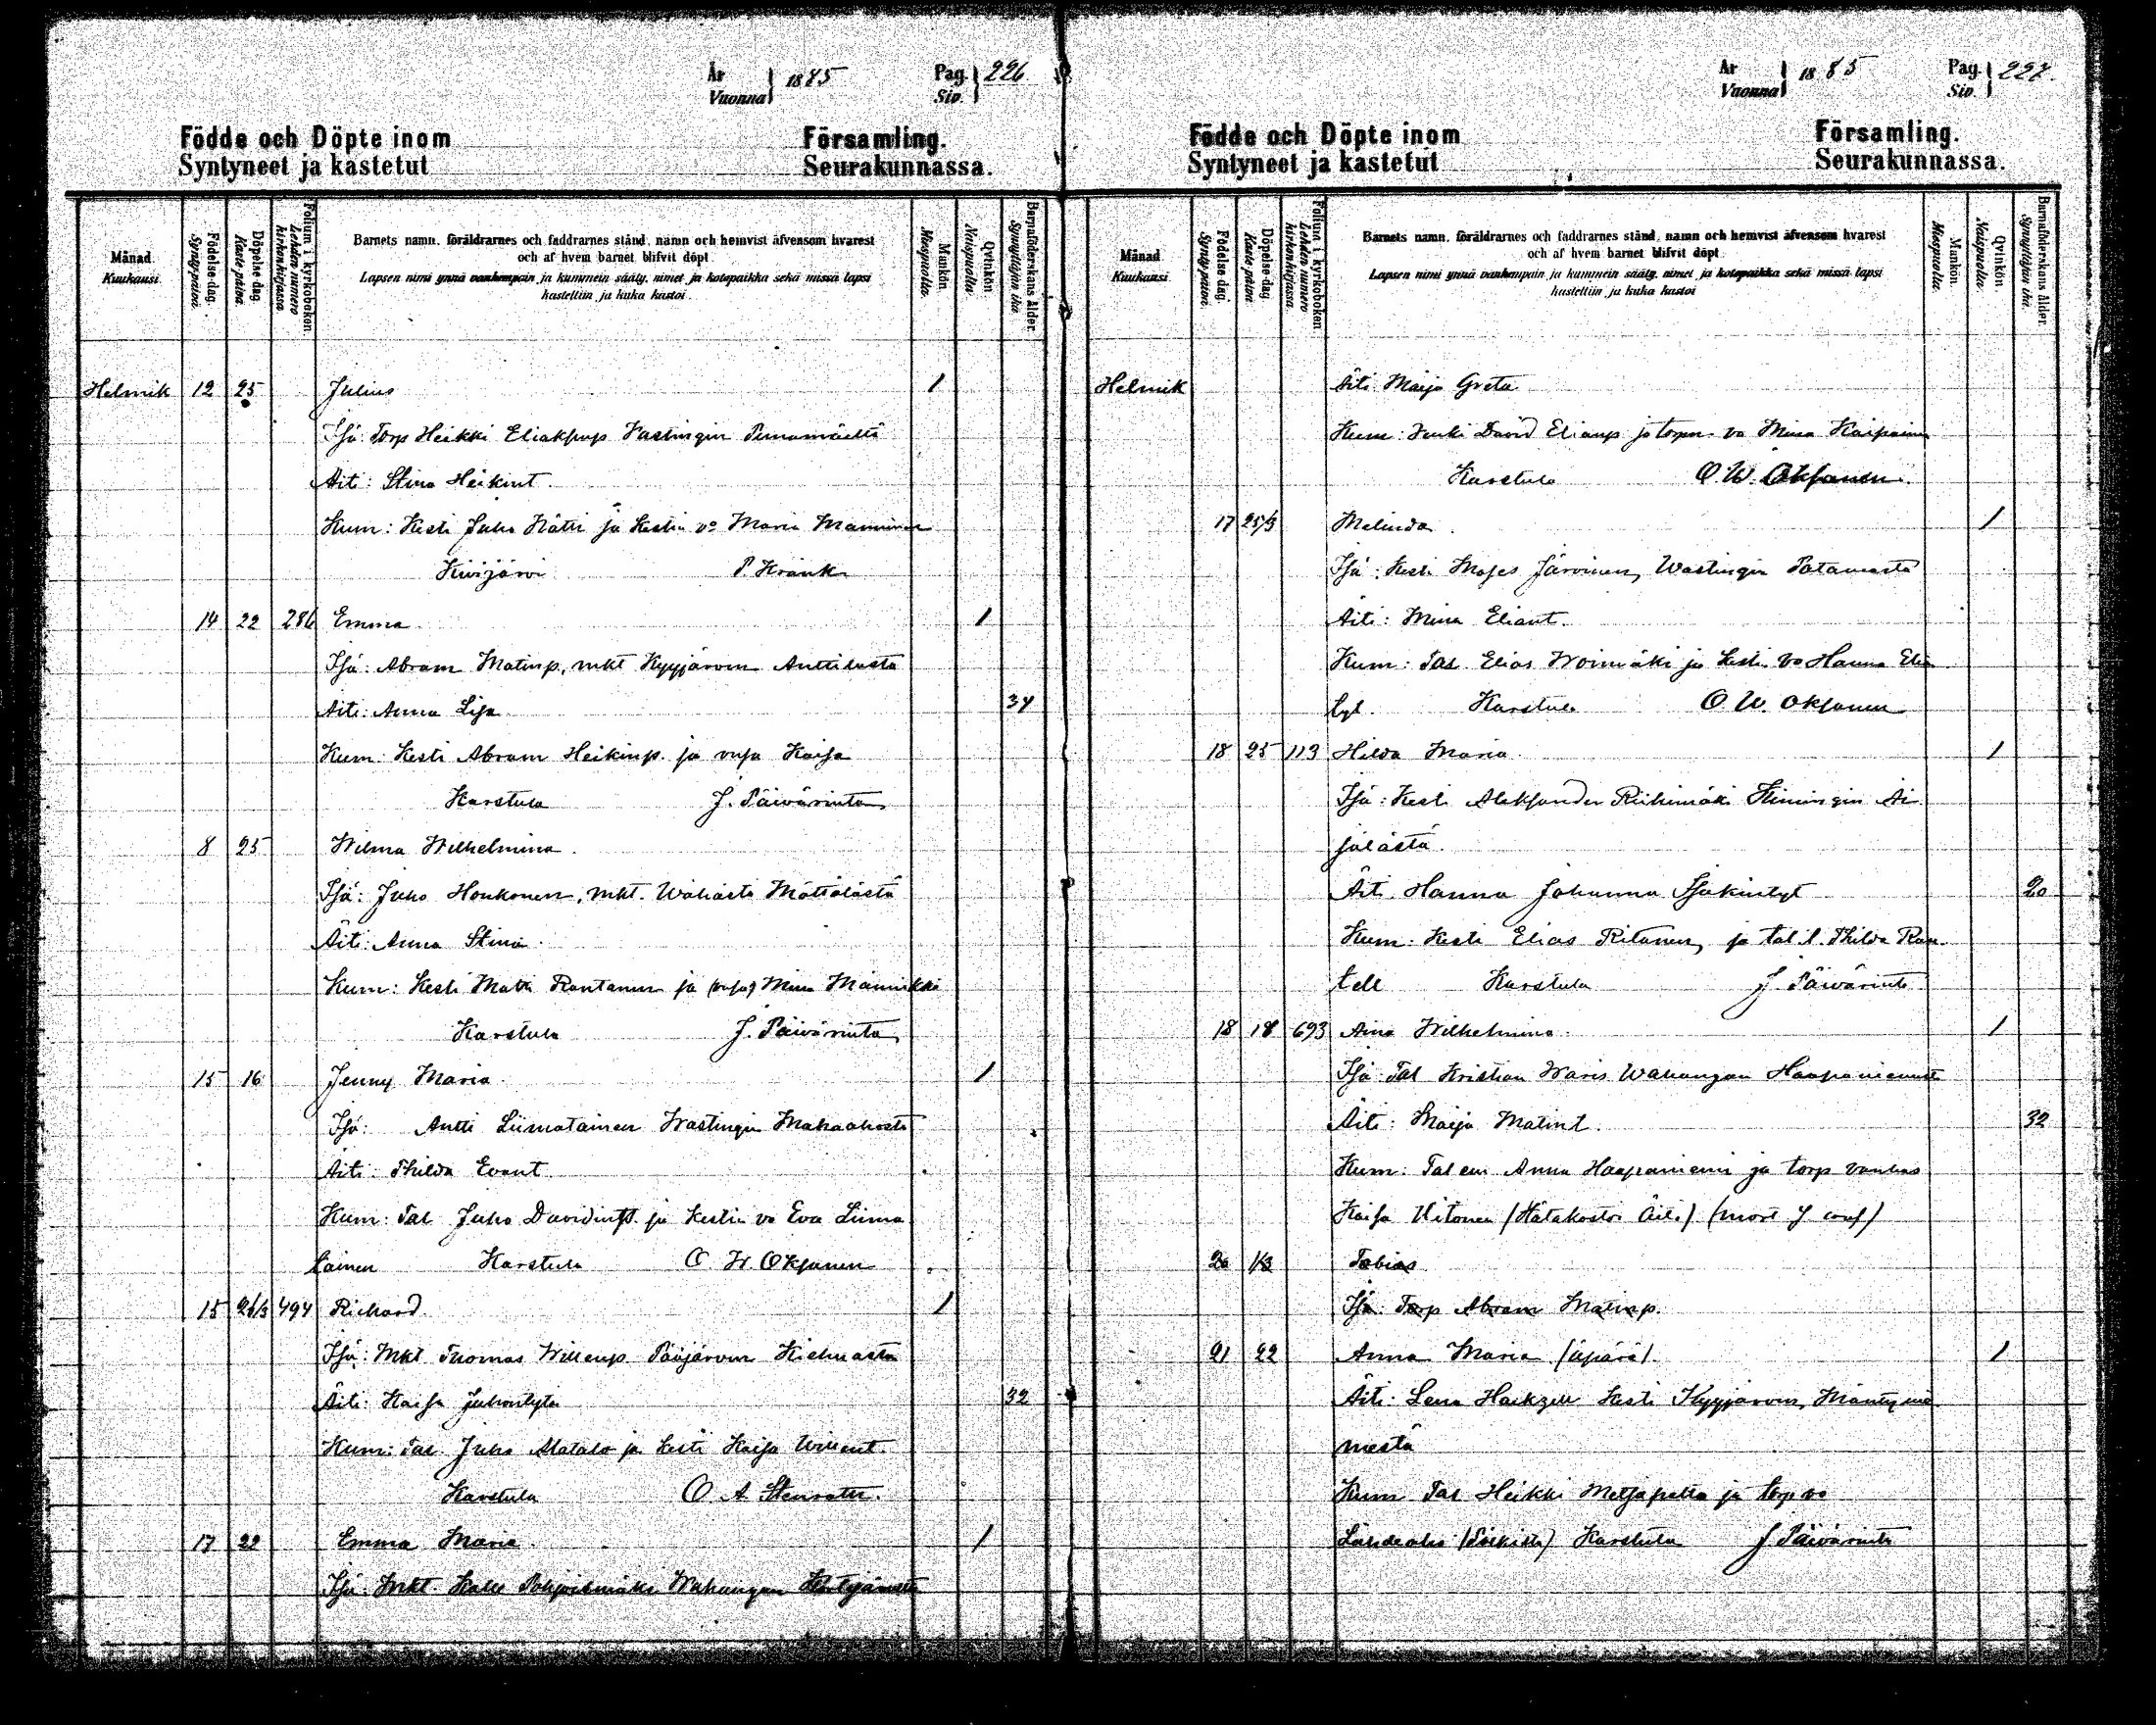 År
Vuonna } 1885 Pag.
Siv. } 226
Födde och Döpte inom Församling.
Syntyneet ja kastetut Seurakunnassa.
Månad
Kuukausi
Födelse dag.
Synty-päivä.
Döpelse dag.
Kaste-päivä.
Folium i kyrkoboken.
Lehden numero
kirkonkirjassa
Barnets namn, föräldrarnes och faddrarnes stånd, namn och hemvist äfvensom hvarest
och af hvem barnet blifvit döpt
Lapsen nimi ynnä vanhempain ja kummein sääty, nimet ja kotopaikka sekä missä lapsi
kastettiin ja kuka kastoi.
Mankön.
Miespuolta.
Qvinkön.
Naispuolta.
Barnaföderskans ålder.
Synnyttäjän ikä
Helmik 12 25 Julius 1
Isä: Torp Heikki Vastingin
Äit: Stina Heikint.
Kum: Kesti Juho Hätti ja Kestin vo Maria Manninen
Kivijärvi P Krank
14 22 286 Emma 1
Isä: Abram Matinp, mkt Kyyjärven Anttilasta
Äiti: Anna Lisa 34
Kum: Kesti Abram Heikinp. ja vmsa Kaisa
Karstula J. Päivärinta
8 25 Wilma Wilhelmina
Isä: Juho Honkonen, mkt. Mättälästä
Äiti: Anna Stina
Kum: Kesti Matti Rantanen ja Mina Männikkö
Karstula J. Päivärinta
15 16 Jenny Maria 1
Isä: Antti Liimatainen Wastingin Mahaahosta
Äiti: Thilda Evant
Kum: Tal Juho Davidinp. ja Kestin vo Eva Liima
tainen Karstula O W Oksanen
15 26/3 494 Richard 1
Isä: Mkt Tuomas Willenp Pääjärven
Äiti: Kaisa Juhontytär 32
Kum: Tal. Juho Alatalo ja Kesti Kaisa Willent.
Karstula O A Stenroter.
17 22 Emma Maria 1
Isä: Mkt. Kalle Pohjoismäki Wahangan
År
Vuonna } 1885 Pag.
Siv. } 227.
Födde och Döpte inom Församling.
Syntyneet ja kastetut Seurakunnassa.
Månad
Kuukausi
Födelse dag.
Synty-päivä.
Döpelse dag.
Kaste-päivä.
Folium i kyrkoboken.
Lehden numero
kirkonkirjassa.
Barnets namn, föräldrarnes och faddrarnes stånd, namn och hemvist äfvensom hvarest
och af hvem barnet blifvit döpt
Lapsen nimi ynnä vanhempain ja kummein sääty, nimet ja kotopaikka sekä missä lapsi
kastettiin ja kuka kastoi
Mankön.
Miespuolta.
Qvinkön.
Naispuolta.
Barnaföderskans ålder.
Synnyttäjän ikä.
Helmik Äiti Maija Greta
Kum: David Elianp ja torpn vo Mina Kaipainen
Karstula O. W. Oksanen.
17 25/3 Melinda 1
Isä: Kesti Moses Järvinen, Wastingin Potamasta
Äiti: Mina Eliant.
Kum: Tal Elias Woimäki ja Kestin vo Hanna Elia
tyt. Karstula O W. Oksanen
18 25 113 Hilda Maria 1
Isä: Kesti Aleksander Riihimäki Kiminigin Ai
jälästä.
Äiti Hanna Johanna Isakintyt 20
Kum: Kesti Elias Ritanen, ja tal.t. Thilda Ran
tell Karstula J Päivärinta
18 18 693 Aina Wilhelmina 1
Isä: Tal Kristian Waris Wahangan Haapaniemestä
Äiti: Maija Matint. 32
Kum: Tal em Anna Haapaniemi ja torp vanhus
Kaisa Uitonen (Hätäkastoi Äiti)
20 1/3 Tobias
Isä: Torp Abram Matinp.
21 22 Anna Maria (äpärä). 1
Äiti: Lena Hackzell Kesti Kyyjärven, Mäntynie
mestä
Kum Tal Heikki Metsäpelto ja torp vo
Karstula J Päivärinta